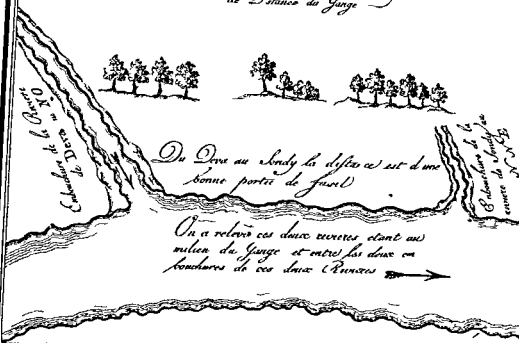 de Distance du Gange
Embouchure de la Riviere
de Deva au N O
Du Deva au Sondy la distance est d'une
bonne portée de fusil
Embouchure de la
riviere de Sondy au
N N E
On a relevé ces deux rivieres etant au
milieu du Gange et entre les deux em
bouchures de ces deux Rivieres